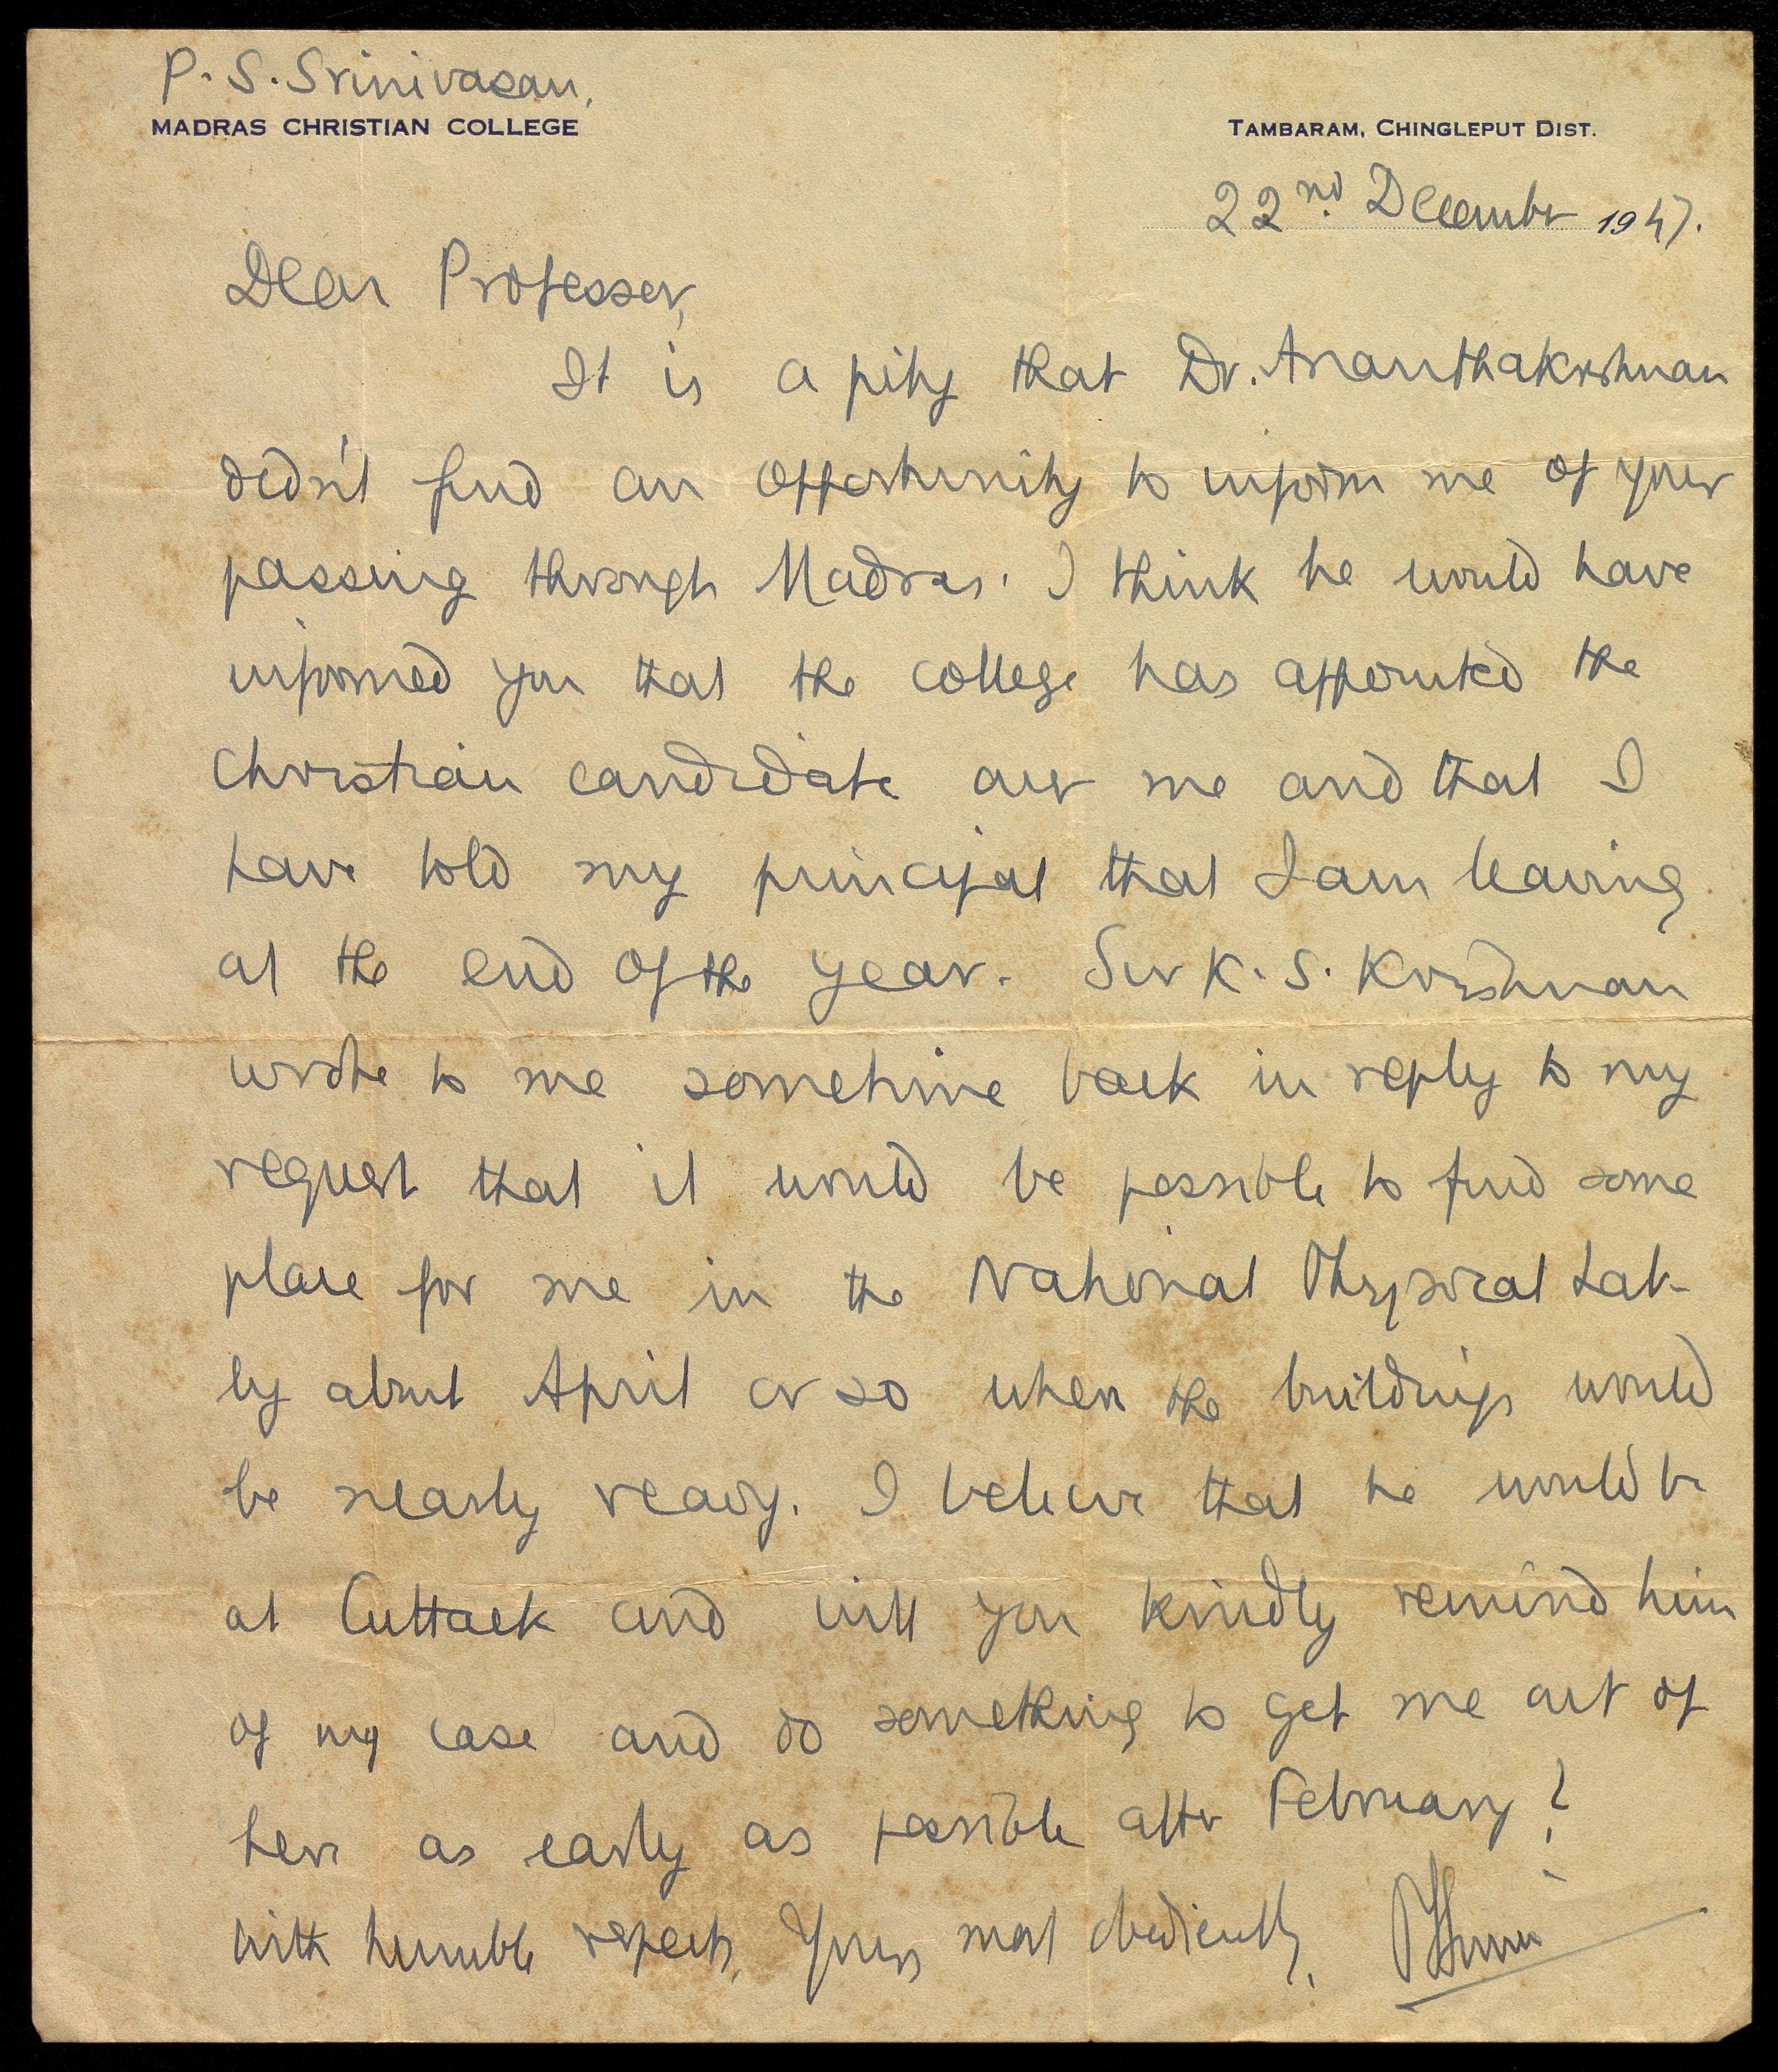 P. S. Srinivasan,
MADRAS CHRISTIAN COLLEGE
TAMBARAM, CHINGLEPUT DIST.
22nd. December 1947.
Dear Professor,
It is a pity that Dr. Ananthakrishnan
didn't find an opportunity to inform me of your
passing through Madras. I think he would have
informed you that the college has appointed the
Christian candidate over me and that I
have told my principal that I am leaving
at the end of the year. Sir K. S. Krishnan
wrote to me sometime back in reply to my
request that it would be possible to find some
place for me in the National Physical Lab-
by about April or so when the buildings would
be nearly ready. I believe that he would be
at Cuttack and will you kindly remind him
of my case and do something to get me out of
here as early as possible after February?
With humble respects, Yours most obediently,